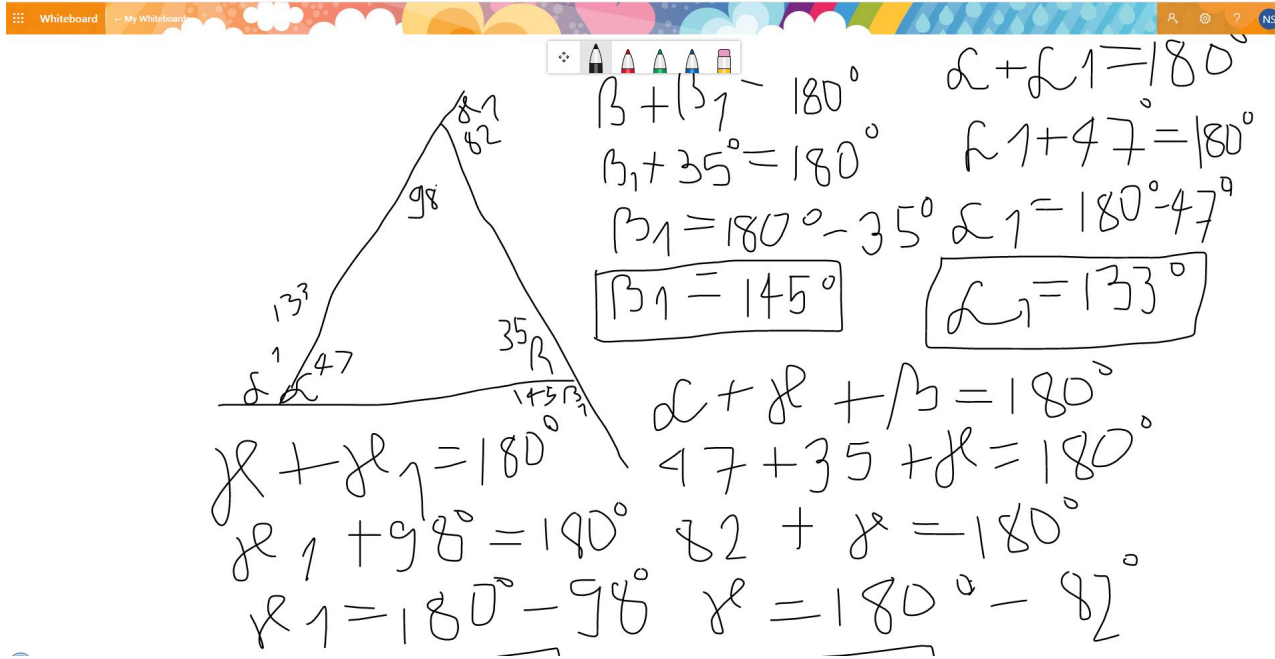 Whiteboard ← My Whiteboard
? NS
γ1
82
98
133
1
α α 47
35 β
145 β1
β + β1 = 180°
β1 + 35° = 180°
β1 = 180° - 35°
β1 = 145°
α + α1 = 180°
α1 + 47° = 180°
α1 = 180° - 47°
α1 = 133°
γ + γ1 = 180°
γ1 + 98° = 180°
γ1 = 180° - 98°
α + γ + β = 180°
47 + 35 + γ = 180°
82 + γ = 180°
γ = 180° - 82°